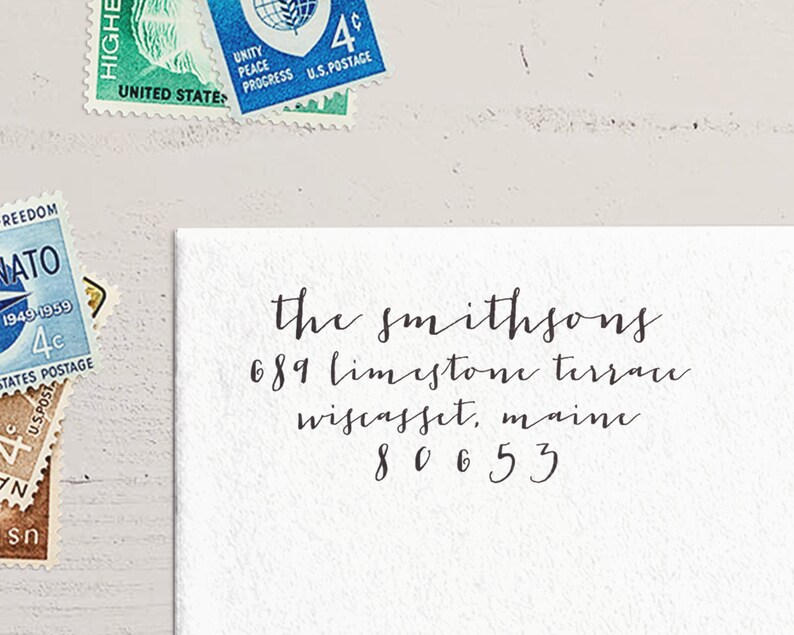 HIGHE
UNITED STATES
UNITY
PEACE
PROGRESS
4¢
U.S. POSTAGE
FREEDOM
NATO
1949-1959
4c
STATES POSTAGE
4c
U.S. POST
the smithsons
689 limestone terrace
wiscasset, maine
80653